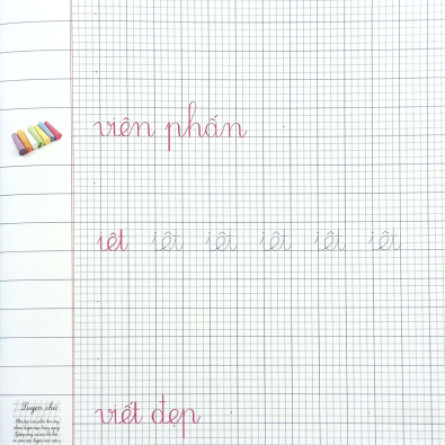 viên phấn
iêt iêt iêt iêt iêt iêt
Luyện chữ
viết đẹp